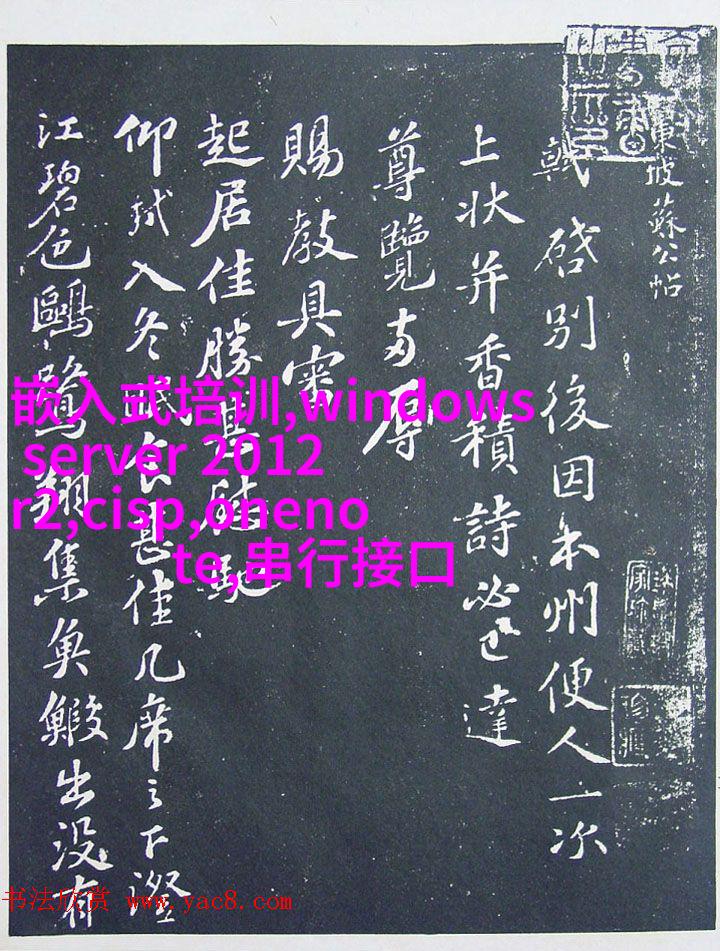 東坡蘇公帖
軾啓別後因本州便人一次
上狀并香積詩必已達
尊覽兩辱
賜教具審
起居佳勝甚慰馳
仰軾入冬眠食甚佳几席之下澄
江碧色鷗鷺翔集魚鰕出没有
嵌入式培训,windows
server 2012
r2,cisp,oneno
te,串行接口
书法欣赏 www.yac8.com